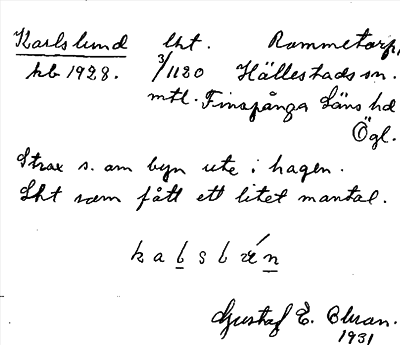 Karlslund lht. Rommetorp,
hb 1928. 3/1120 Hällestads sn.
mtl. Finspånga Läns hd
Ögl.
Strax s. om byn ute i hagen.
Lht som fått ett litet mantal.
Gustaf E. 
1931